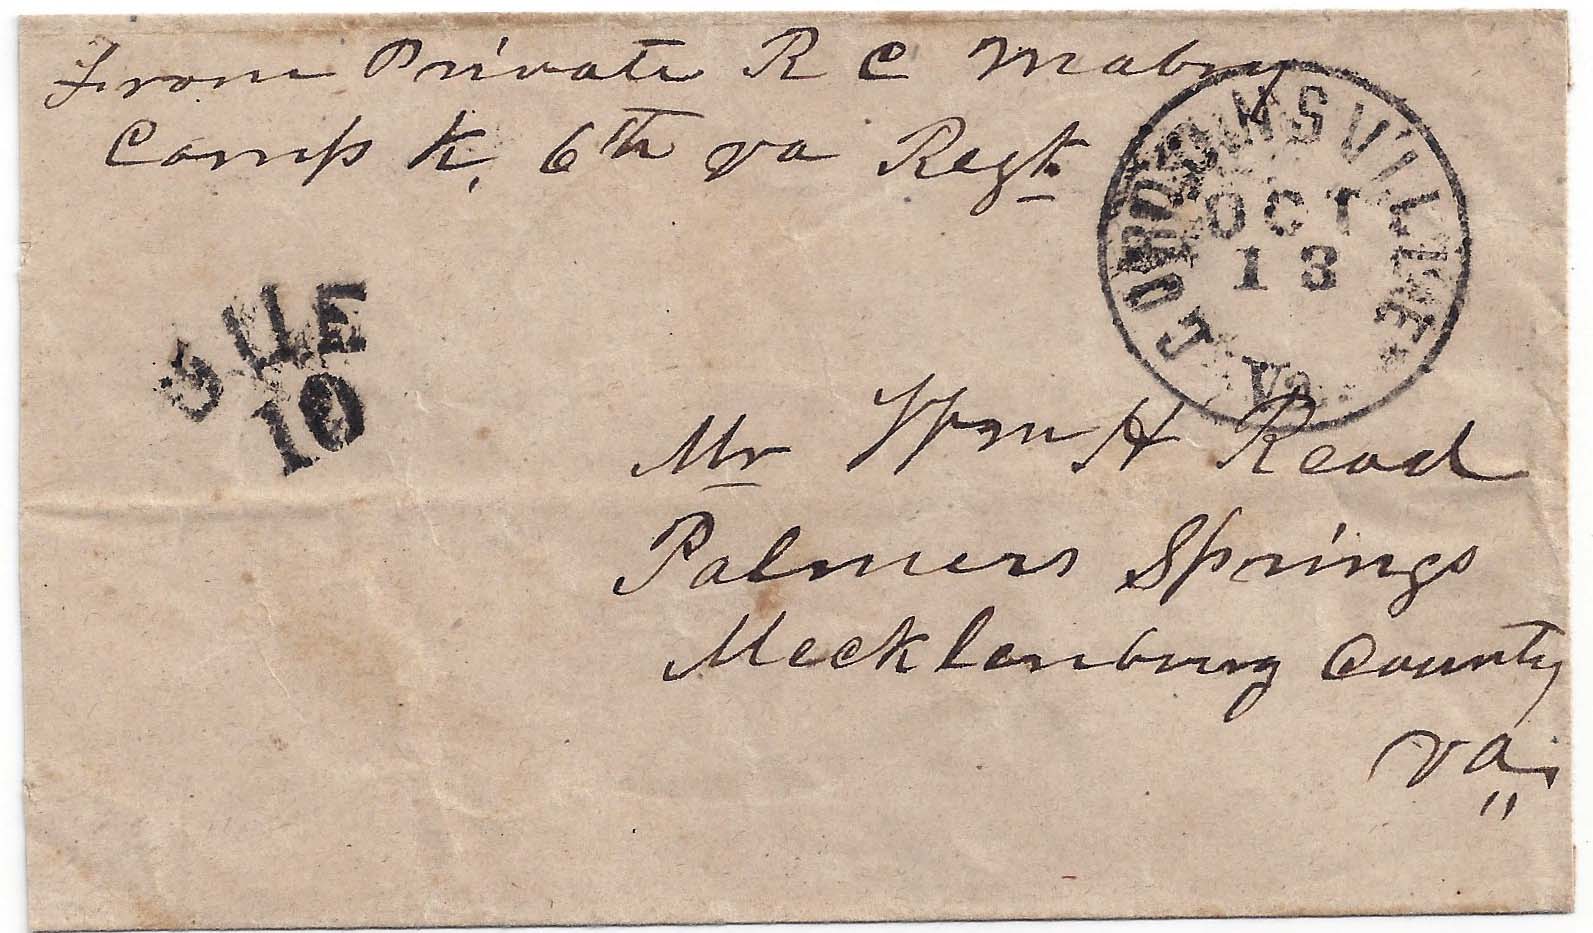 From Private R C Mabry
Comp K, 6th va Regt.
GORDONSVILLE
OCT
13
Va.
DUE
10
Mr Wm H Read
Palmers Springs
Mecklenburg County
va